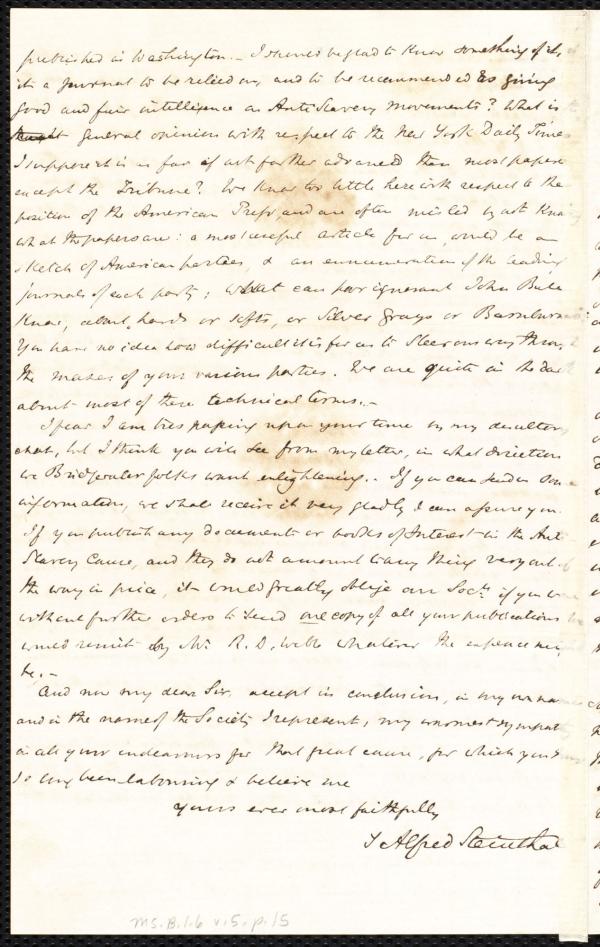 published in Washington. – I should be glad to know something of it, is
it a Journal to be relied on, and to be recommended as giving
good and fair intelligence on Anti Slavery movements? What is
general opinion with respect to the New York Daily Times
I suppose it is as far as not further advanced than most papers
except the Tribune? We know too little here with respect to the
position of the American Press, and are often misled by not know
what the papers are: a most useful article for us, would be a
sketch of American parties, & an enumeration of the leading
journals of each party; What can poor ignorant John Bull
know, about, hards or softs, or Silver Grays or Barnburners
You have no idea how difficult it is for us to steer our way thro'
the mazes of your various parties. We are quite in the dark
about most of these technical terms. –
I fear I am trespassing upon your time by my desultory
chat, but I think you will see from my letter, in what direction
we Bridgwater folks want enlightening.. If you can send us some
information, we shall receive it very gladly I can assure you.
If you publish any documents or books of Interest in the Anti
Slavery Cause, and they do not amount to any thing very out of
the way in price, it would greatly oblige our Socy. if you w
without further orders to send one copy of all your publications
would remit by Mr. R. D. Webb whatever the expence may
be. –
And now my dear Sir, accept in conclusion, in my own name
and in the name of the Society I represent, my warmest sympathy
in all your endeavours for that great cause, for which you
so long been labouring & believe me
Yours ever most faithfully
S Alfred Steinthal
Ms. B. 1. 6 v. 5. p. 15